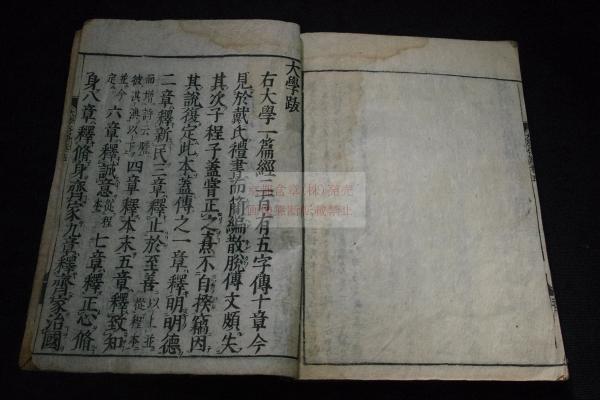 大學跋
右大學一篇經二百有五字傳十章今
見於戴氏禮書而簡編散脫傳文頗失
其次子程子蓋嘗正之熹不自揆竊因
其說復定此本蓋傳之一章釋明明德
二章釋新民三章釋止於至善以上並從程本
而增詩云瞻彼淇澳以下四章釋本末五章釋致知
並今六章釋誠意從程本七章釋正心脩
身八章釋脩身齊家九章釋齊家治國